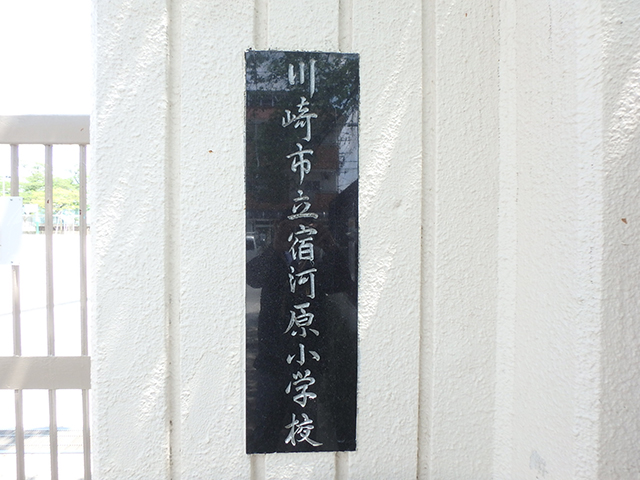 川崎市立宿河原小学校